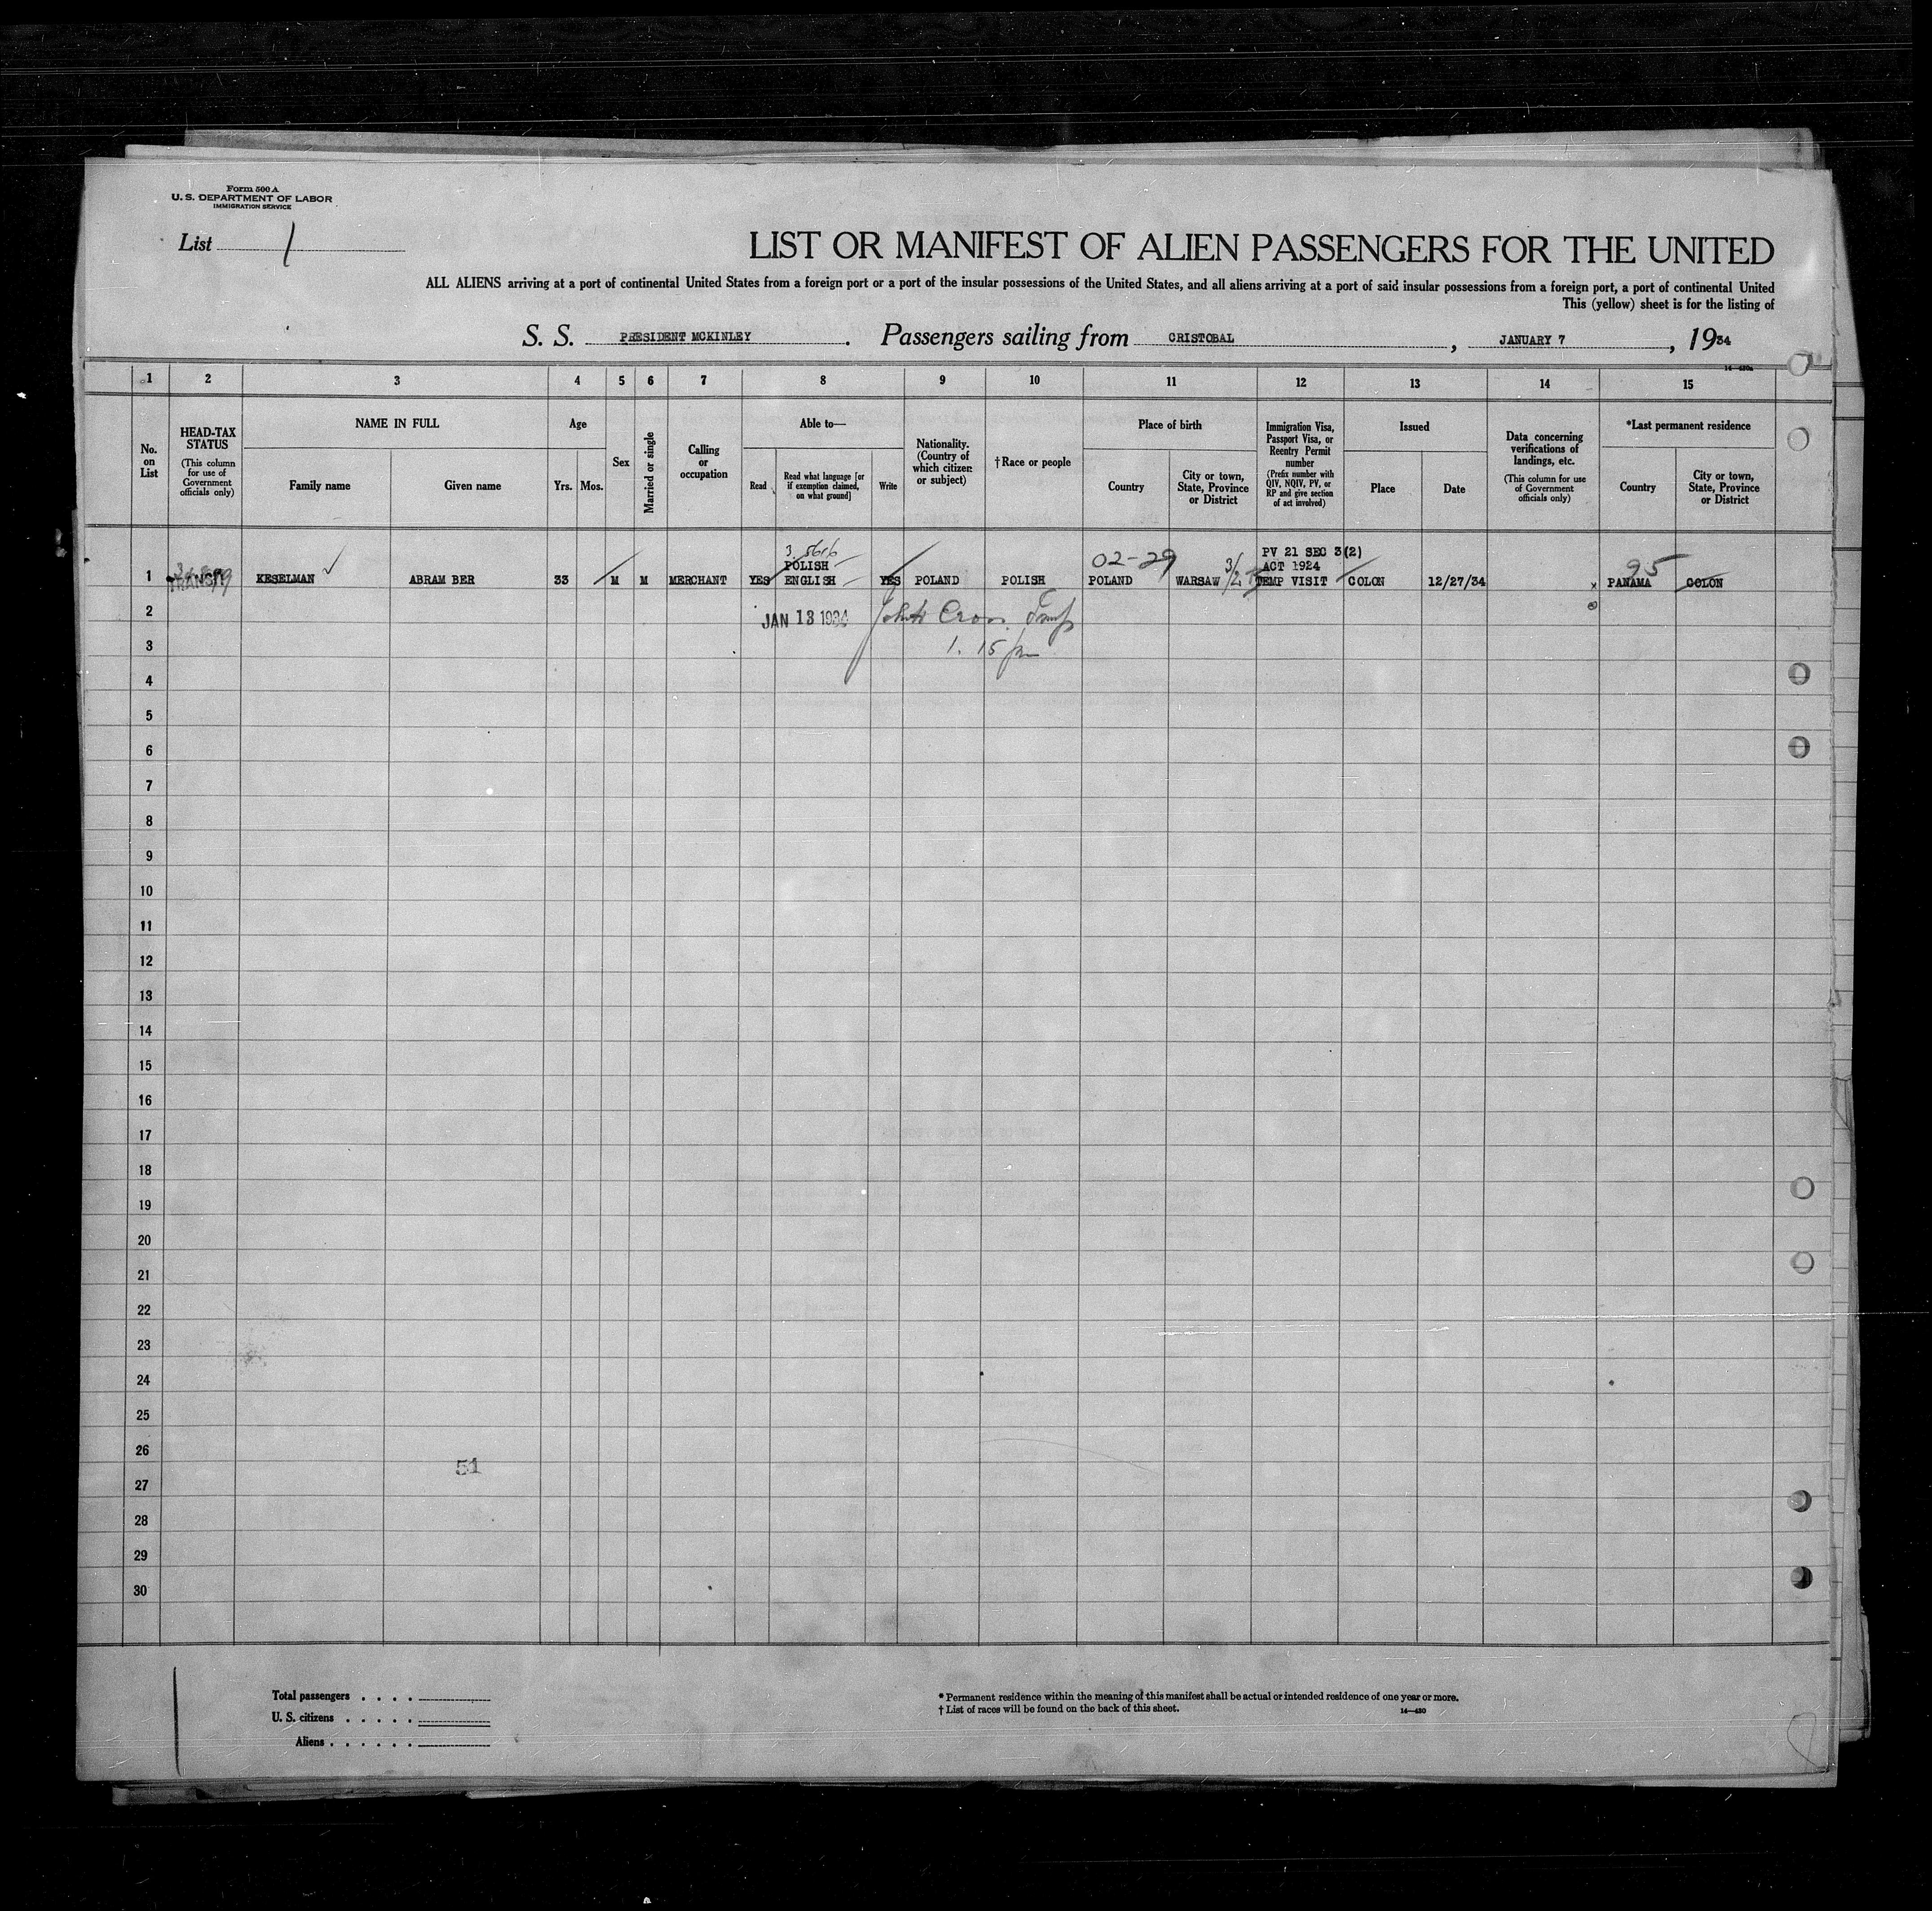 Form 500 A
U. S. DEPARTMENT OF LABOR
IMMIGRATION SERVICE
List 1
LIST OR MANIFEST OF ALIEN PASSENGERS FOR THE UNITED
ALL ALIENS arriving at a port of continental United States from a foreign port or a port of the insular possessions of the United States, and all aliens arriving at a port of said insular possessions from a foreign port, a port of continental United
This (yellow) sheet is for the listing of
S. S. PRESIDENT MCKINLEY . Passengers sailing from CRISTOBAL , JANUARY 7 , 1934
14—430a
1 2 3 4 5 6 7 8 9 10 11 12 13 14 15
No. on List
HEAD-TAX STATUS
(This column for use of Government officials only)
NAME IN FULL
Family name
Given name
Age
Yrs.
Mos.
Sex
Married or single
Calling or occupation
Able to—
Read
Read what language [or if exemption claimed, on what ground]
Write
Nationality. (Country of which citizen or subject)
†Race or people
Place of birth
Country
City or town, State, Province or District
Immigration Visa, Passport Visa, or Reentry Permit number
(Prefix number with QIV, NQIV, PV, or RP and give section of act involved)
Issued
Place
Date
Data concerning verifications of landings, etc.
(This column for use of Government officials only)
*Last permanent residence
Country
City or town, State, Province or District
02-29
PV 21 SEC 3(2)
POLISH
ACT 1924
95
1 TRANSIT KESELMAN ✓ ABRAM BER 33 M M MERCHANT YES ENGLISH YES POLAND POLISH POLAND WARSAW TEMP VISIT COLON 12/27/34 x PANAMA COLON
2 JAN 13 1934
3 1.15 pm
4
5
6
7
8
9
10
11
12
13
14
15
16
17
18
19
20
21
22
23
24
25
26
51
27
28
29
30
Total passengers . . . .
U. S. citizens . . . . .
Aliens . . . . . .
* Permanent residence within the meaning of this manifest shall be actual or intended residence of one year or more.
† List of races will be found on the back of this sheet.
14—430